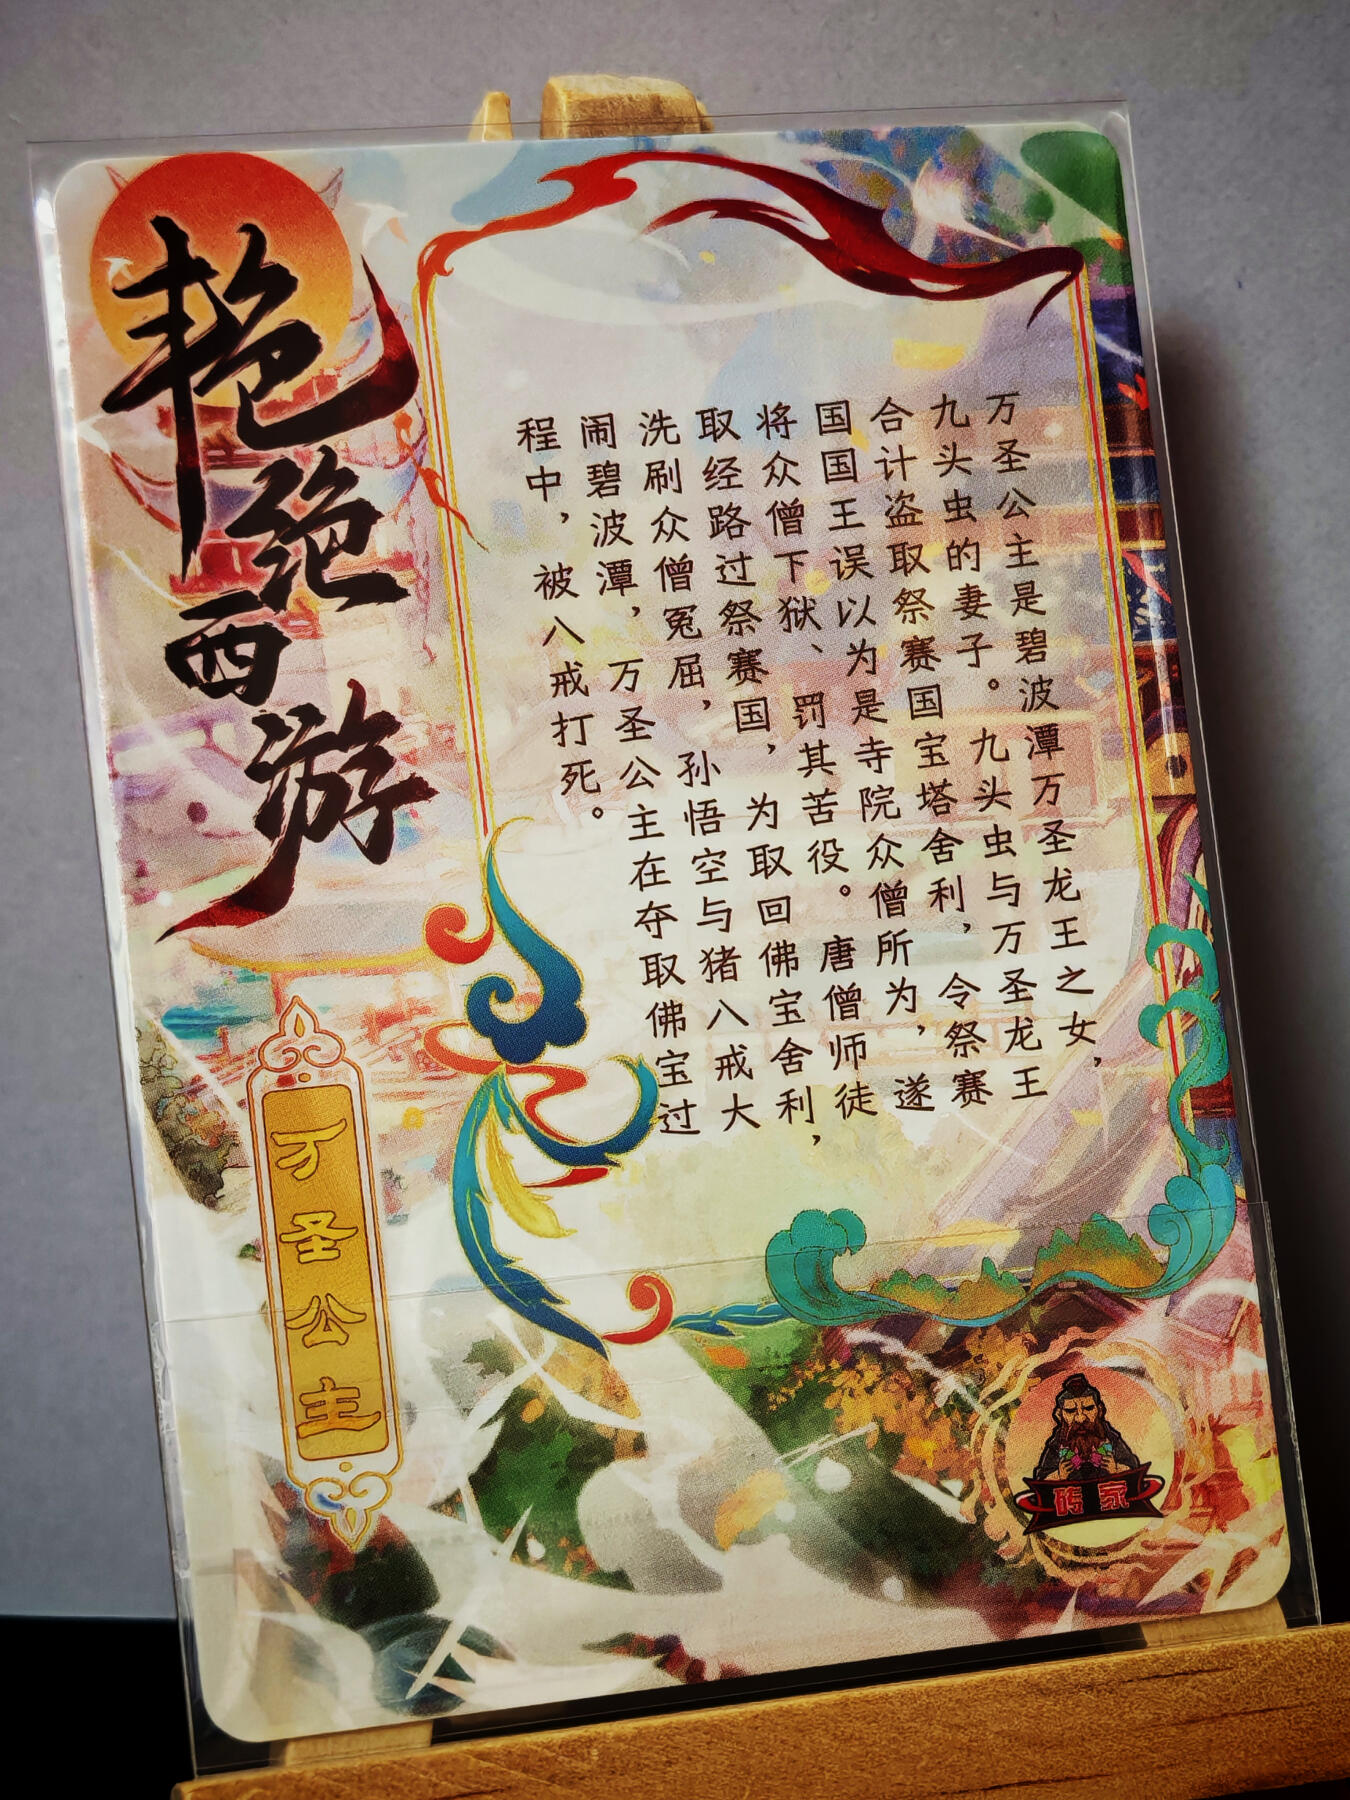 艳绝西游
万圣公主是碧波潭万圣龙王之女，
九头虫的妻子。九头虫与万圣龙王
合计盗取祭赛国宝塔舍利，令祭赛
国国王误以为是寺院众僧所为，遂
将众僧下狱、罚其苦役。唐僧师徒
取经路过祭赛国，为取回佛宝舍利，
洗刷众僧冤屈，孙悟空与猪八戒大
闹碧波潭，万圣公主在夺取佛宝过
程中，被八戒打死。
万圣公主
砖家